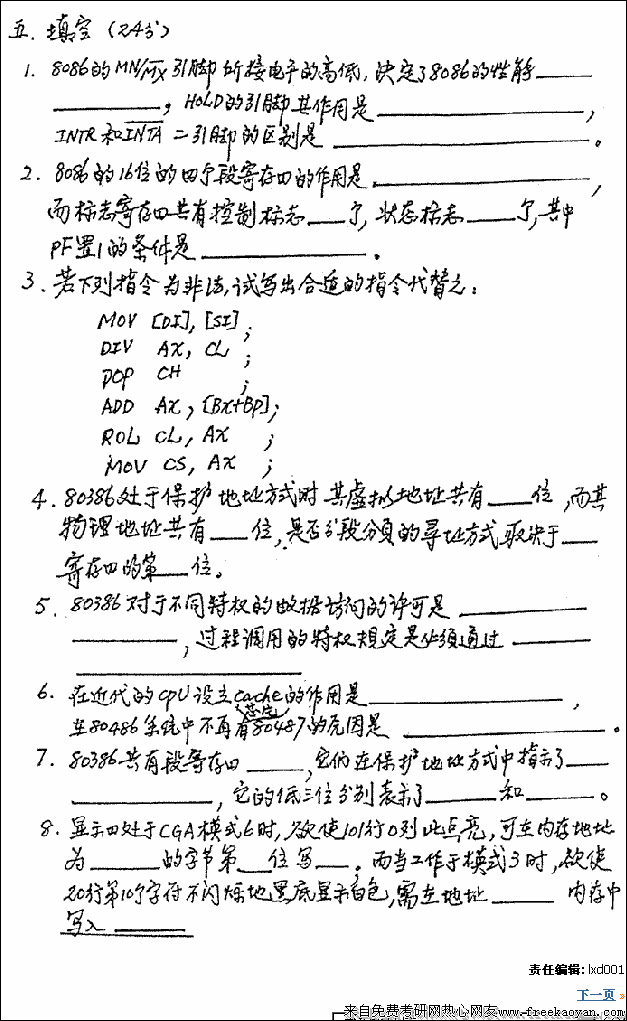 五. 填空 (24分)
1. 8086的MN/M̅X̅引脚所接电平的高低, 决定了8086的性能____
________, HOLD的引脚其作用是____________,
INTR和I̅N̅T̅A̅二引脚的区别是____________。
2. 8086的16位的四个段寄存四的作用是____________,
而标志寄存四共有控制标志___个, 状态标志____个, 其中
PF置1的条件是____________.
3. 若下列指令为非法, 试写出合适的指令代替之:
MOV [DI], [SI];
DIV AX, CL ;
POP CH ;
ADD AX, [BX+BP];
ROL CL, AX ;
MOV CS, AX ;
4. 80386处于保护地址方式时其虚拟地址共有___位, 而其
物理地址共有___位, 是否分段分页的寻址方式取决于___
寄存四的第___位。
5. 80386对于不同特权的数据访问的许可是________
________, 过程调用的特权规定是必须通过______
____________
6. 在近代的CPU设立cache的作用是____________,
在80486系统中不再有80487芯片的原因是____________。
7. 80386共有段寄存四_____, 它们在保护地址方式中指示了___
________, 它的低三位分别表示了_____和_____。
8. 显示四处于CGA模式6时, 欲使101行0列此点亮, 可在内存地址
为______的字节第__位写__. 而当工作于模式3时, 欲使
20行第10个字符不闪烁地黑底显示白色, 需在地址_____内存中
写入________
责任编辑: lxd001
下一页
来自免费考研网热心网友www.freekaoyan.com